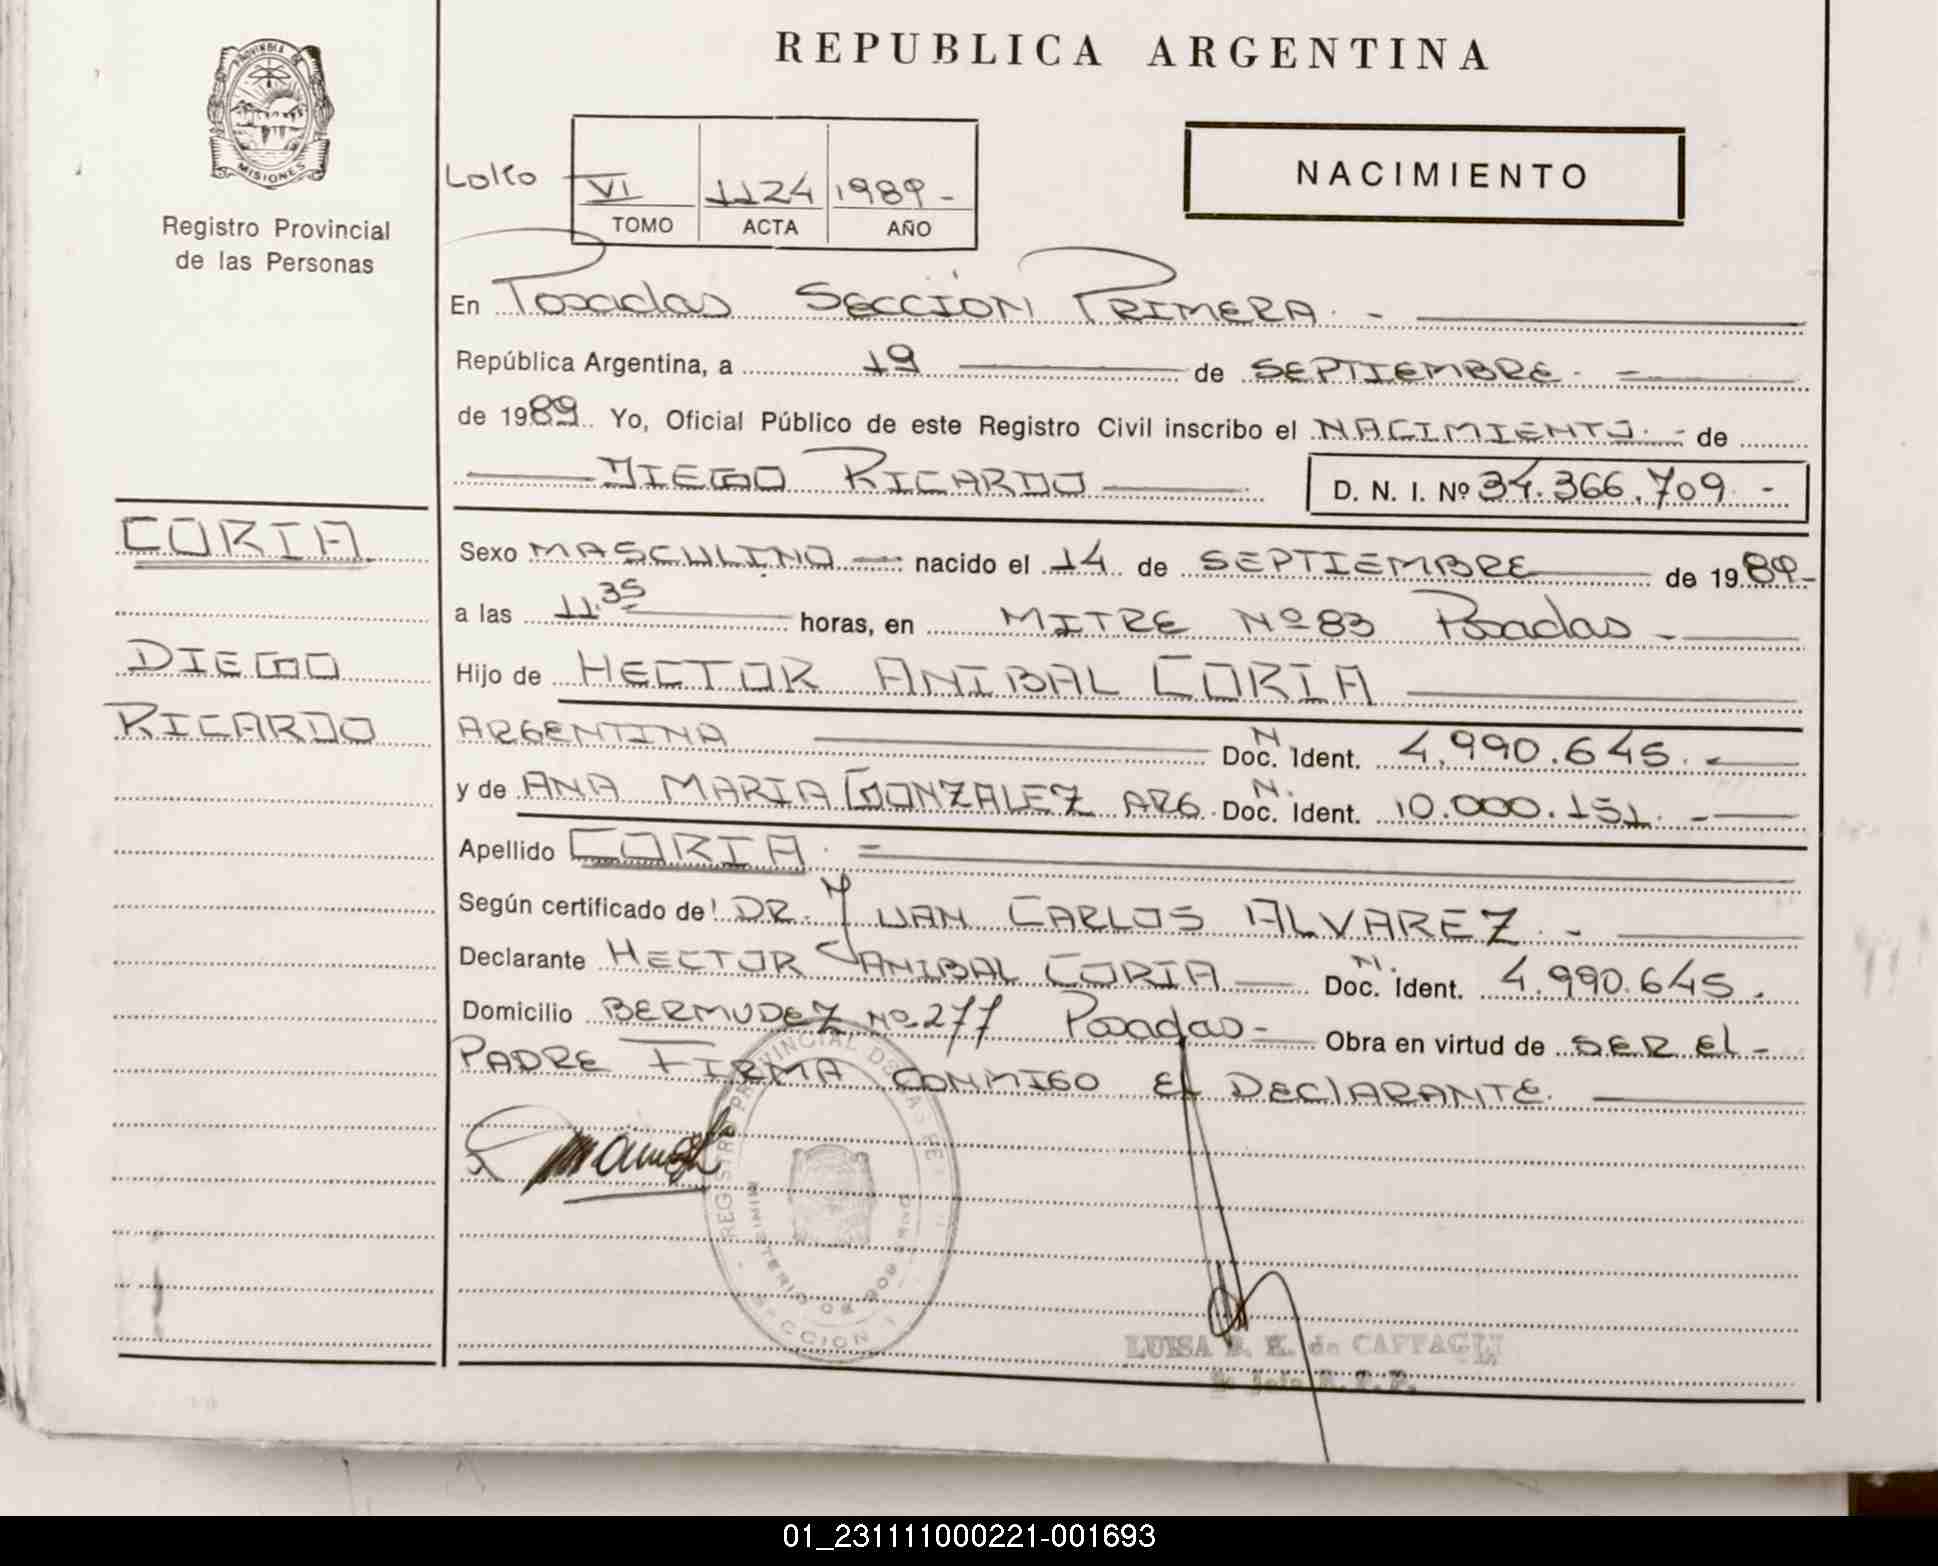 PROVINCIA DE
MISIONES
Registro Provincial
de las Personas
REPUBLICA ARGENTINA
NACIMIENTO
VI 1124 1989 -
TOMO ACTA AÑO
En Posadas SECCIÓN PRIMERA. -
República Argentina, a 19 de SEPTIEMBRE. -
de 1989. Yo, Oficial Público de este Registro Civil inscribo el NACIMIENTO. - de
DIEGO RICARDO D. N. I. Nº 34.366.709 -
CORIA
DIEGO
RICARDO
Sexo MASCULINO nacido el 14 de SEPTIEMBRE de 1989-
a las 11.35 horas, en MITRE Nº 83 Posadas -
Hijo de HECTOR ANIBAL CORIA
ARGENTINA Doc. N Ident. 4.990.645. -
y de ANA MARIA GONZALEZ ARG. Doc. N. Ident. 10.000.151. -
Apellido CORIA. -
Según certificado de DR. JUAN CARLOS ALVAREZ. -
Declarante HECTOR ANIBAL CORIA Doc. N. Ident. 4.990.645.
Domicilio BERMUDEZ Nº 277 Posadas - Obra en virtud de SER El -
PADRE FIRMA CONMIGO El DEClARANTE.
REGISTRO PROVINCIAL DE LAS PE
MINISTERIO DE GOBIERNO
SECCION 1
LUISA de CAFFAGLI
01_231111000221-001693